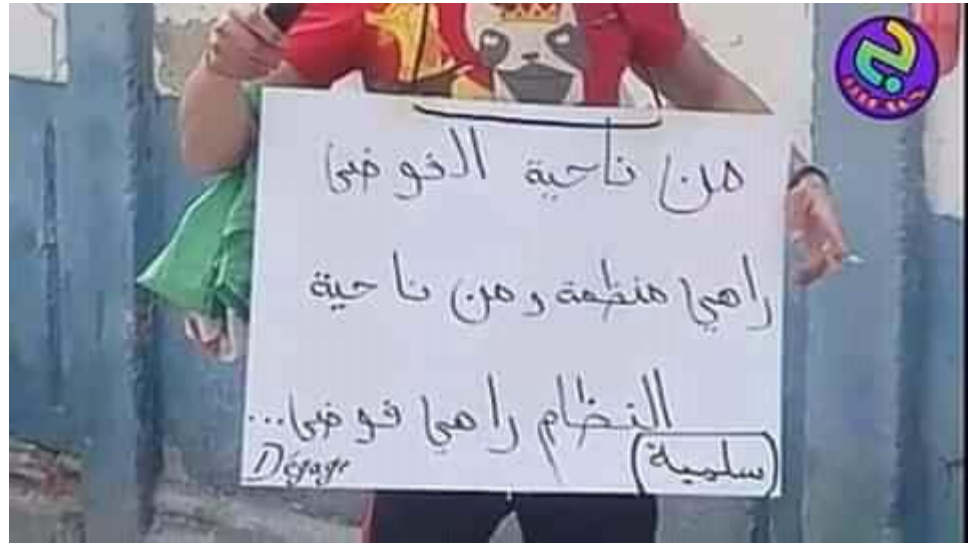 من ناحية الفوضى
راهي منظمة ومن ناحية
النظام راهي فوضى...
(سلمية)
Dégage